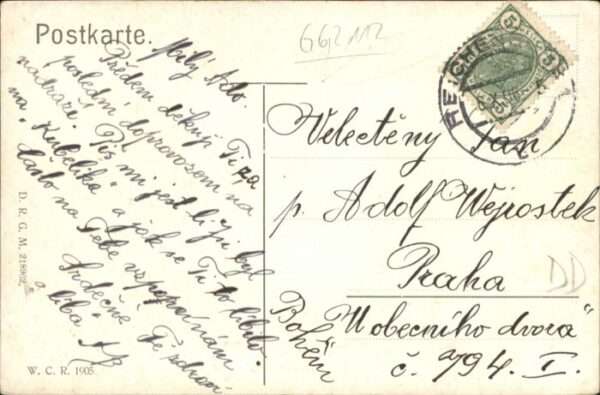 Postkarte.
662112
Milý Ado.
Předem děkuji Ti za
poslední doprovozem na
nádraží. Piš mi jest li ji byl
na „Kubelíka“ a jak se Ti to líbilo.
často na Tebe vzpomínám
Srdečně Tě zdraví
a líbá
D. R. G. M. 218902
W. C. R. 1905.
5 5
REICHEN
Velectěný Pan
p. Adolf Wejrostek
Praha
„U obecního dvora“
č. 794. I.
Böhm
DD